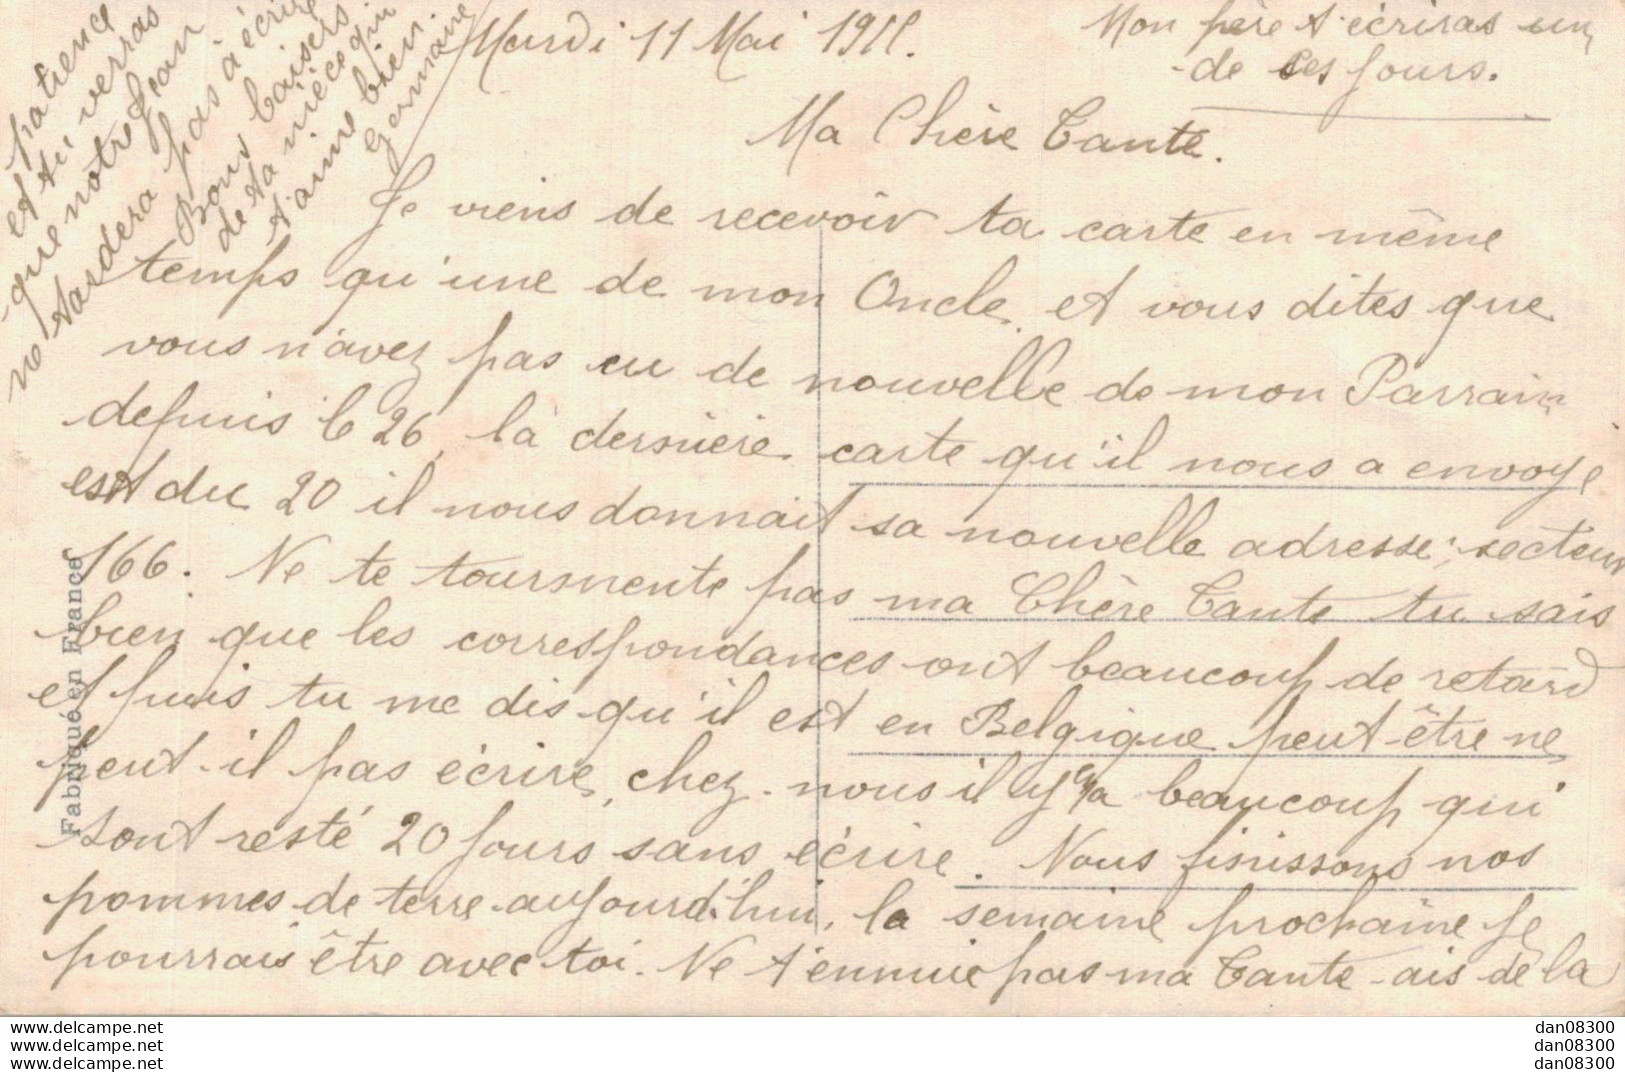 Mardi 11 Mai 1915.
Mon père t'écriras un
de ces jours.
Ma Chère Tante.
Je viens de recevoir ta carte en même
temps qu'une de mon Oncle et vous dites que
vous n'avez pas eu de nouvelle de mon Parrain
depuis le 26, la dernière carte qu'il nous a envoyé
est du 20 il nous donnait sa nouvelle adresse; secteur
166. Ne te tourmente pas ma Chère Tante tu sais
bien que les correspondances ont beaucoup de retard
et puis tu me dis qu'il est en Belgique peut-être ne
peut-il pas écrire, chez nous il y en a beaucoup qui
sont resté 20 jours sans écrire. Nous finissons nos
pommes de terre aujourd'hui, la semaine prochaine je
pourrais être avec toi. Ne t'ennuie pas ma Tante ais de la
patience
et tu verras
que notre Jean
ne tardera pas à écrire
Bons baisers
de ta nièce qui
t'aime bien
Germaine
Fabriqué en France
www.delcampe.net
www.delcampe.net
www.delcampe.net
dan08300
dan08300
dan08300